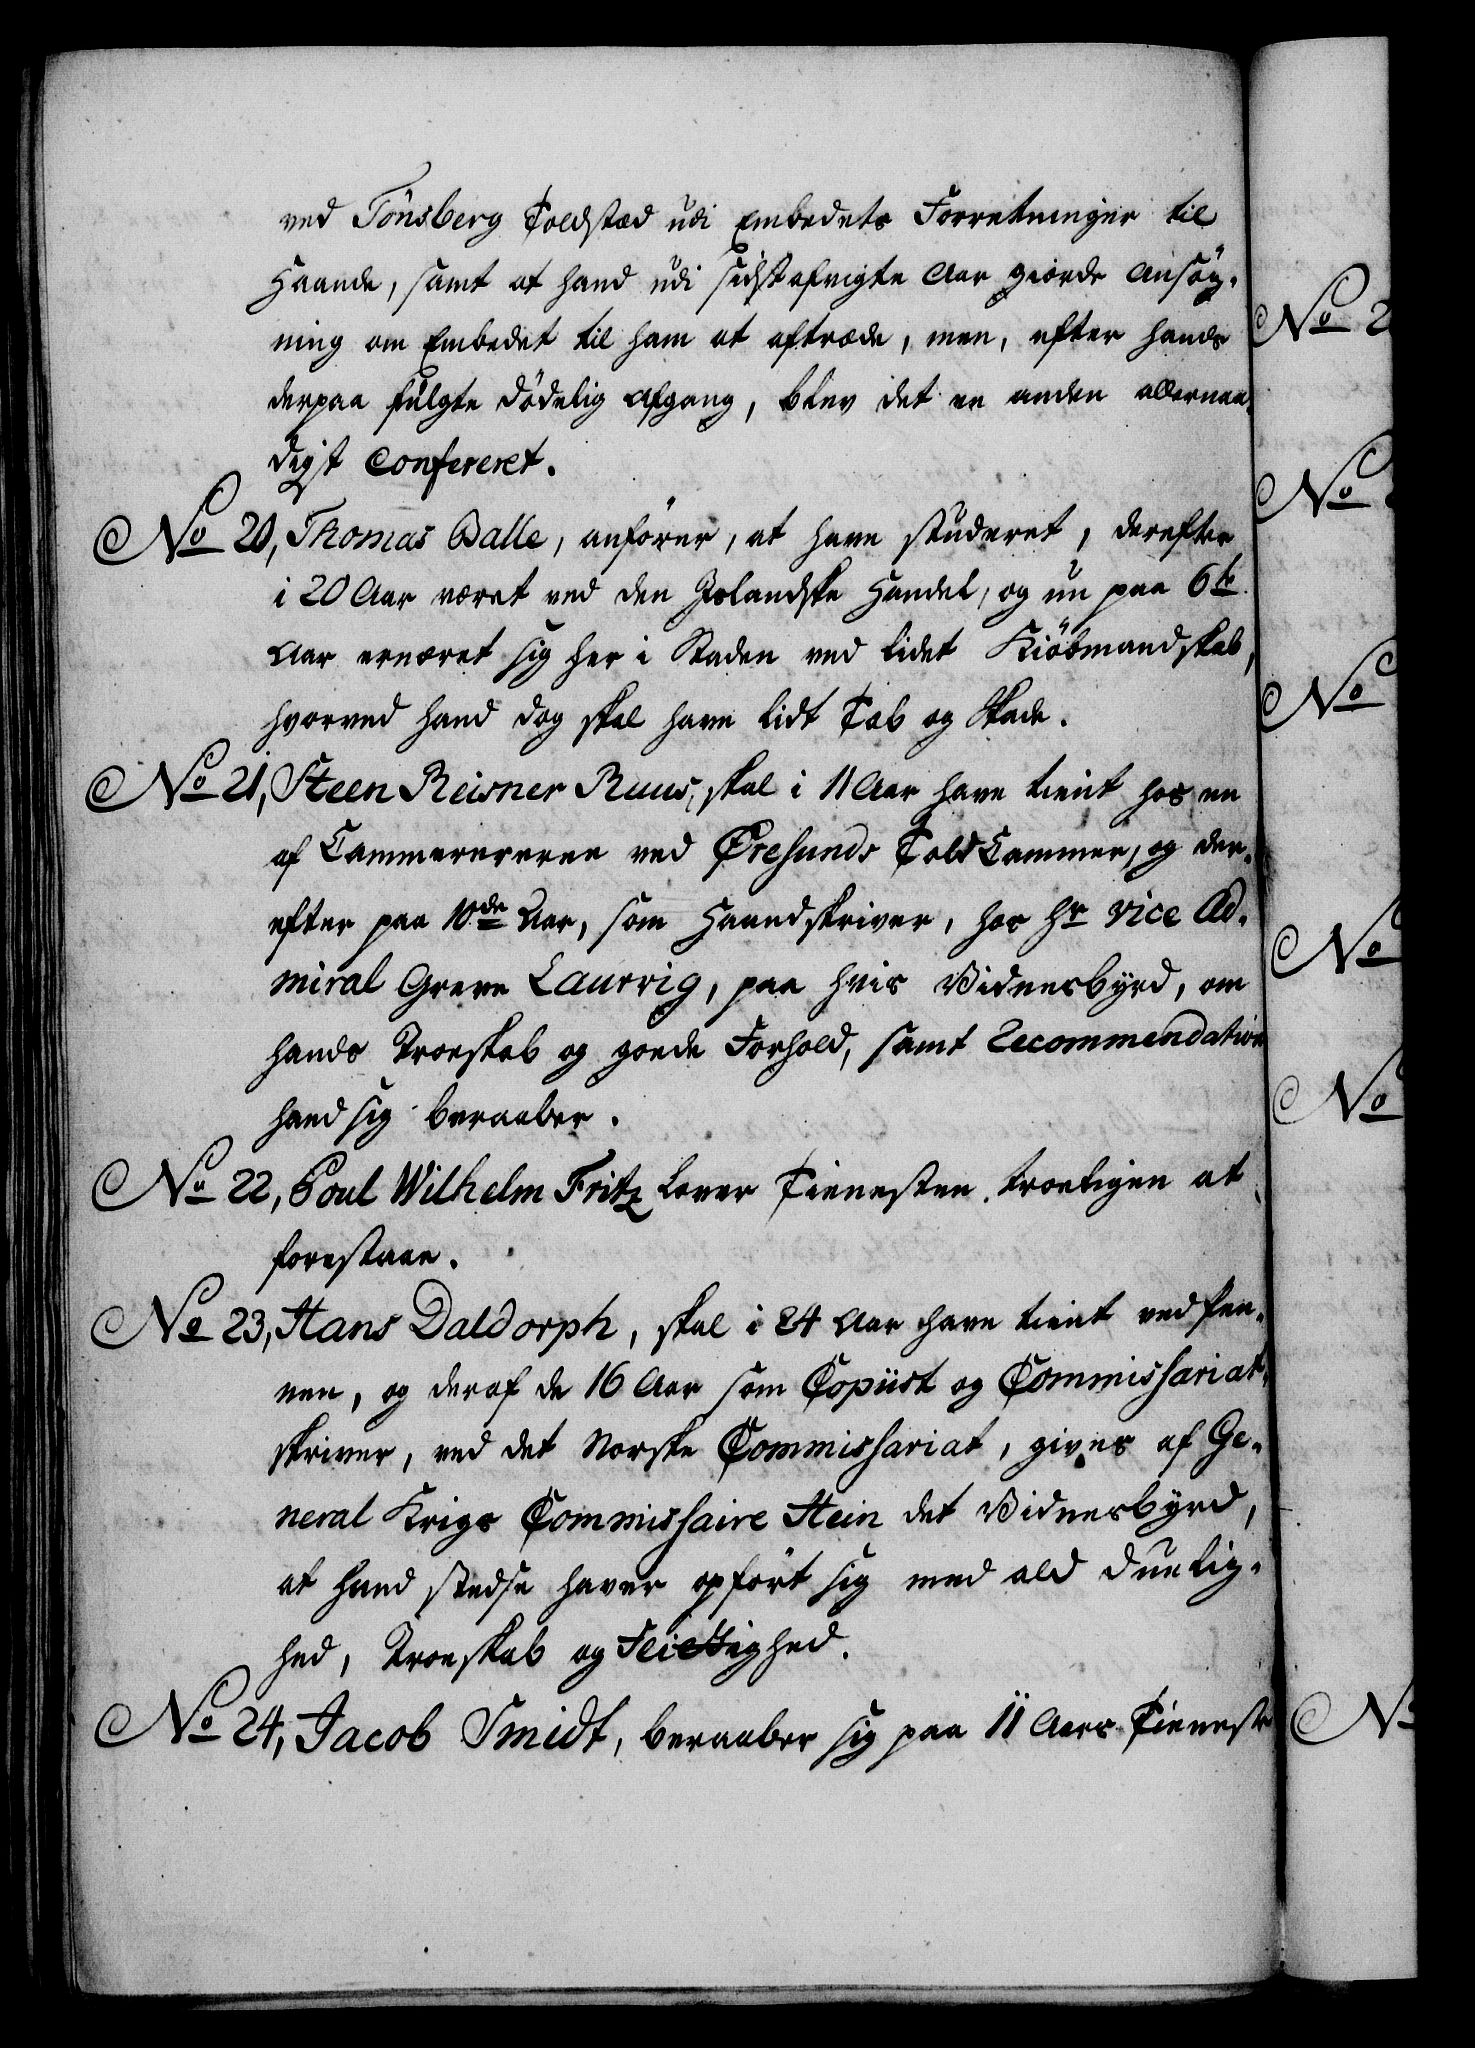 ved Tönsberg Toldstæd udi Embedets Forretninger til
Haande, samt at hand udi sidstafvigte Aar giorde Ansög-
ning om Embedet til ham at aftræde, men, efter hands
derpaa fulgte dödelig Afgang, blev det en anden allernaa-
digst confereret.
No 20, Thomas Balle, anförer, at have studeret, derefter
i 20 Aar været ved den Islandske Handel, og nu paa 6te
Aar ernæret sig her i Staden ved lidet Kiöbmandskab,
hvorved hand dog skal have lidt Tab og Skade.
No 21, Steen Reisner Ruus, skal i 11 Aar have tient hos en
af Cammererene ved Øresunds Told Cammer, og der-
efter paa 10de Aar, som Haandskriver, hos Hr Vice Ad-
miral Greve Laurvig, paa hvis Vidnesbyrd, om
hands Troeskab og goede Forhold, samt Recommendation
hand sig beraaber.
No 22, Poul Wilhelm Fritz Lover Tienesten troeligen at
forestaae.
No 23, Hans Daldorph, skal i 24 Aar have tient ved Pen-
nen, og deraf de 16 Aar som Copiist og Commissariat-
skriver, ved det Norske Commissariat, gives af Ge-
neral Krigs Commissaire Stein det Vidnesbyrd,
at hand stedse haver opført sig med ald Duelig-
hed, Troeskab og Feiettighed.
No 24, Jacob Smidt, beraaber sig paa 11 Aars Tieneste
No 2
No
No
No
No
No